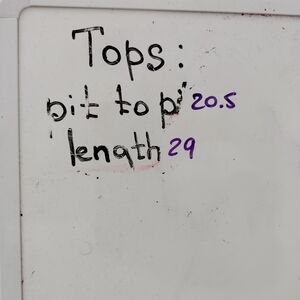 Tops:
pit to pi 20.5
length 29